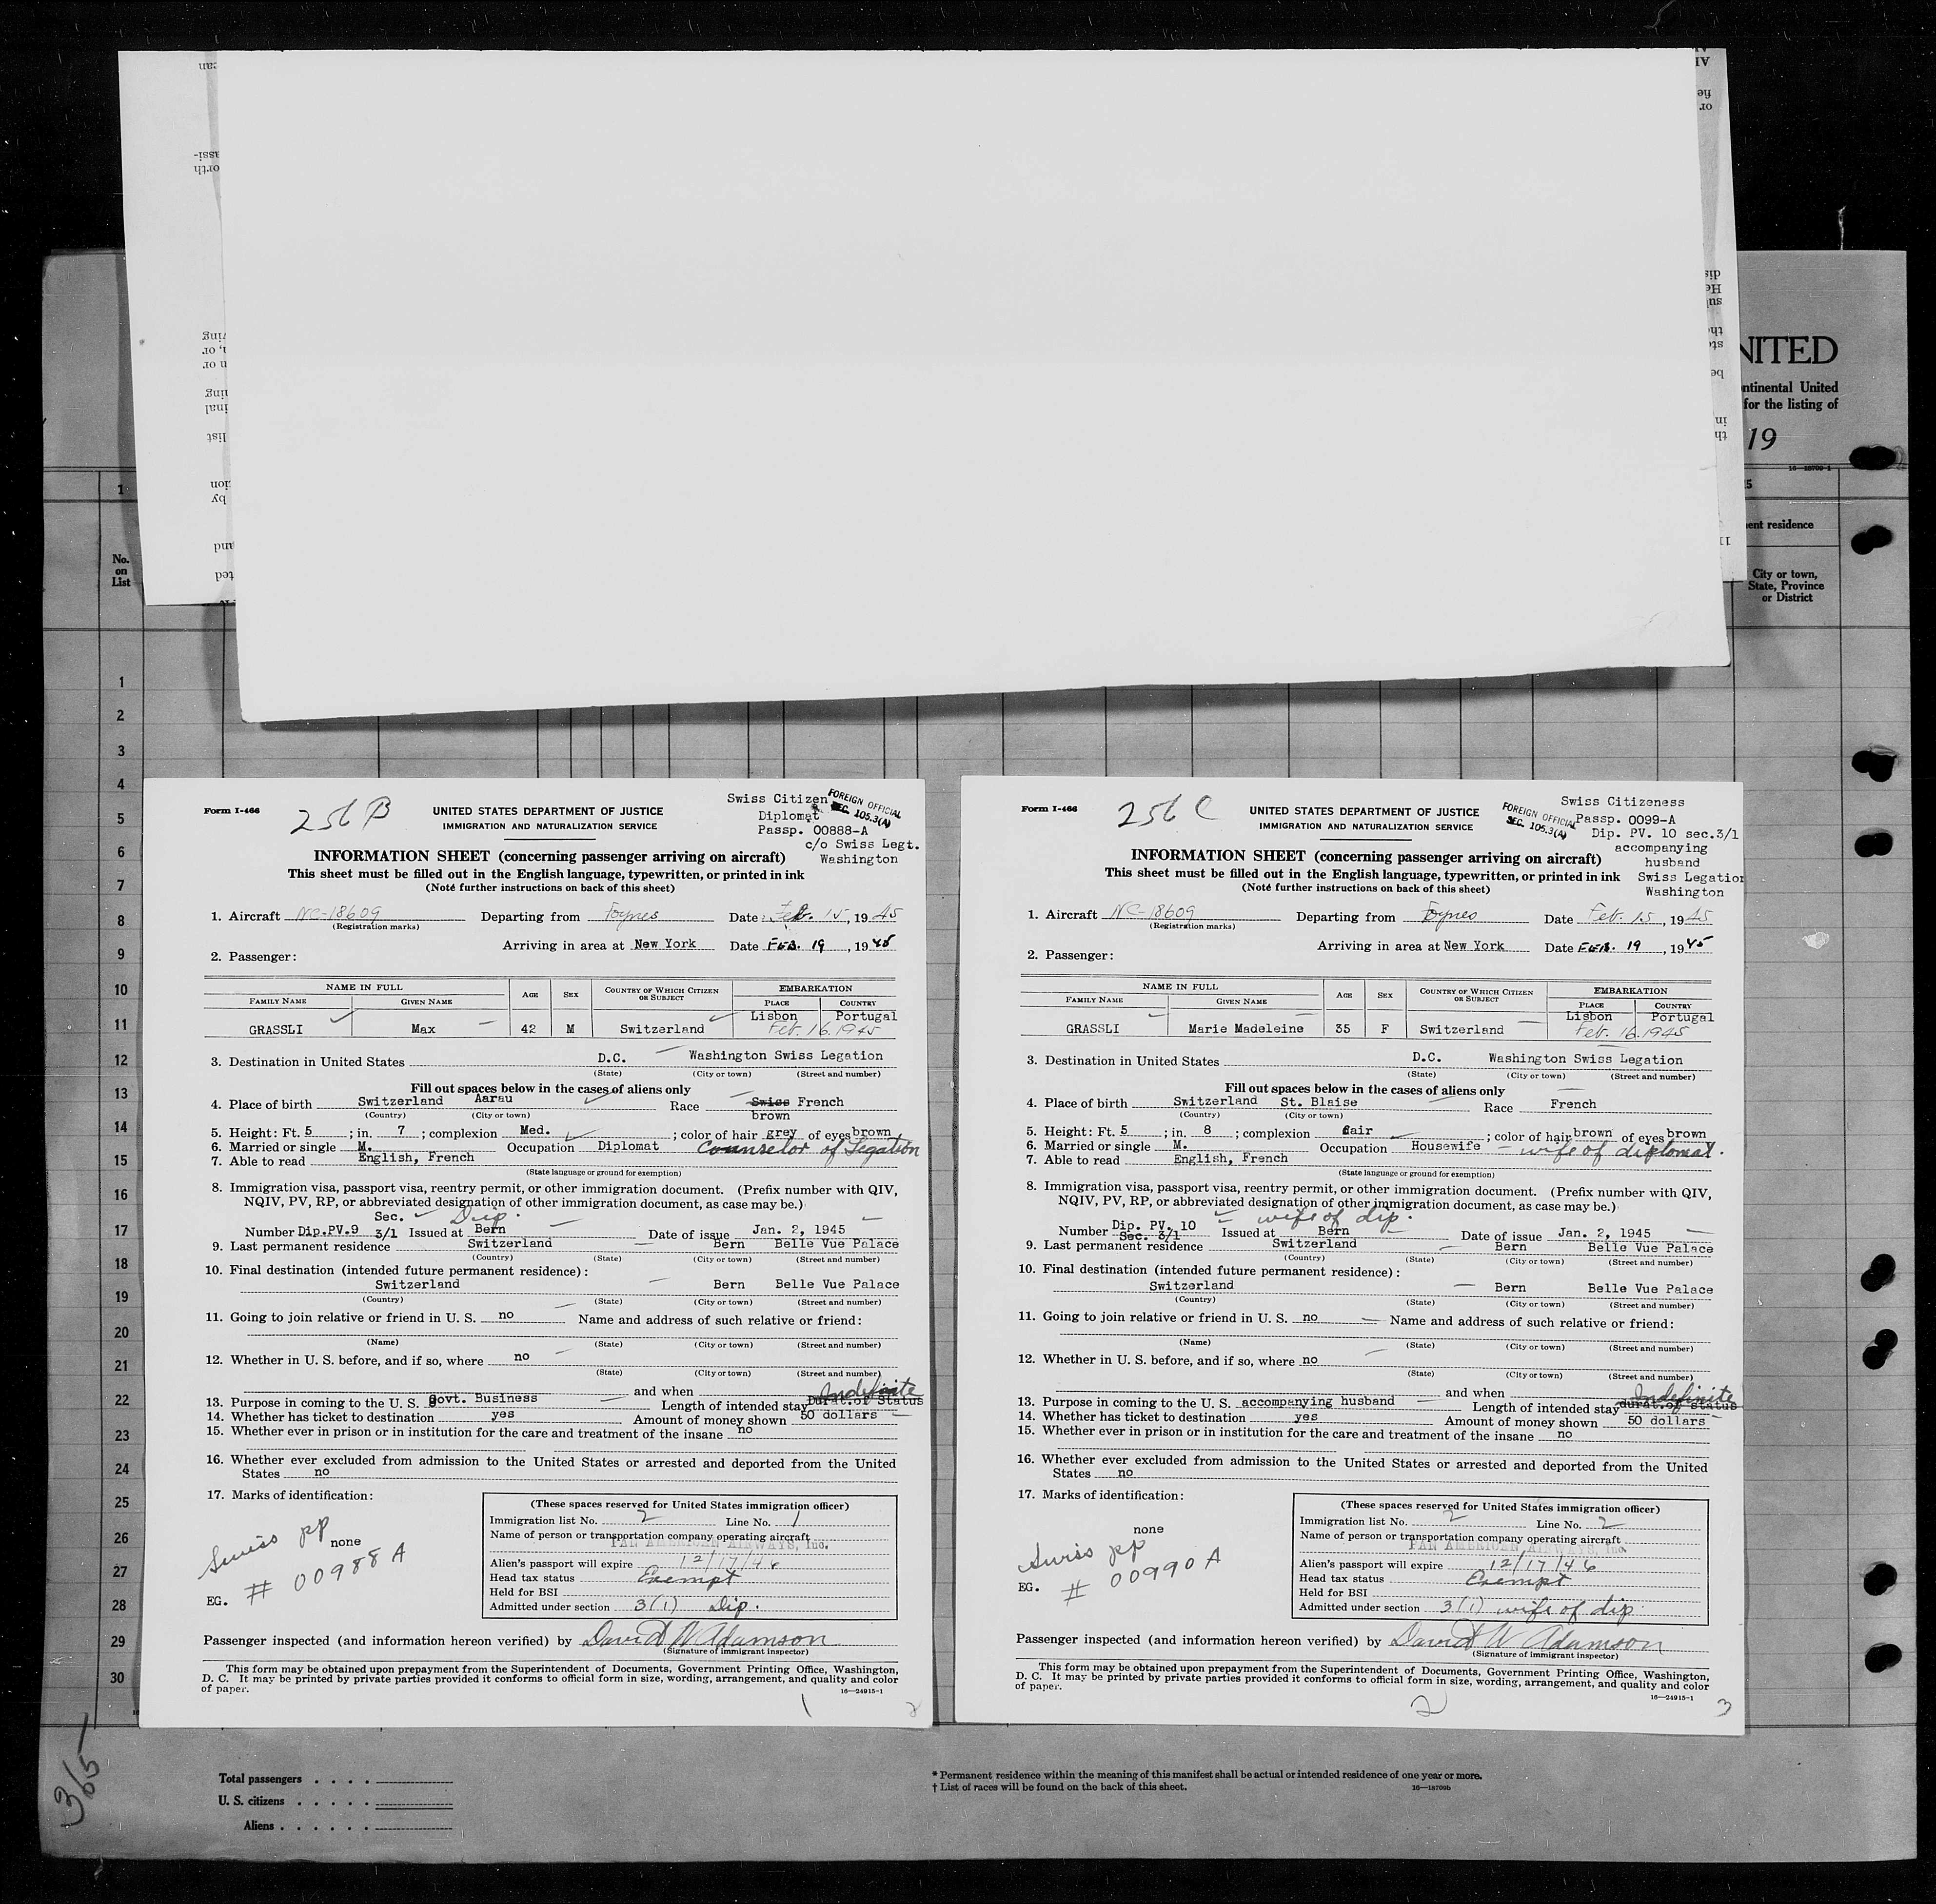 NITED
ntinental United
for the listing of
19
16—18709-1
ent residence
City or town,
State, Province
or District
1
No.
on
List
1
2
3
4
5
6
7
8
9
10
11
12
13
14
15
16
17
18
19
20
21
22
23
24
25
26
27
28
29
30
Form I-466
256 B
UNITED STATES DEPARTMENT OF JUSTICE
IMMIGRATION AND NATURALIZATION SERVICE
Swiss Citizen
Diplomat
Passp. 00888-A
c/o Swiss Legt.
Washington
FOREIGN OFFICIAL
SEC. 105.3(A)
INFORMATION SHEET (concerning passenger arriving on aircraft)
This sheet must be filled out in the English language, typewritten, or printed in ink
(Note further instructions on back of this sheet)
1. Aircraft NC-18609 Departing from Foynes Date Feb. 15, 1945
(Registration marks)
Arriving in area at New York Date FEB. 19, 1945
2. Passenger:
NAME IN FULL
FAMILY NAME GIVEN NAME AGE SEX COUNTRY OF WHICH CITIZEN OR SUBJECT EMBARKATION
PLACE COUNTRY
Lisbon Portugal
GRASSLI Max 42 M Switzerland Feb. 16. 1945
3. Destination in United States D.C. Washington Swiss Legation
(State) (City or town) (Street and number)
Fill out spaces below in the cases of aliens only
4. Place of birth Switzerland Aarau Race Swiss French
(Country) (City or town) brown
5. Height: Ft. 5 ; in. 7 ; complexion Med. ; color of hair grey of eyes brown
6. Married or single M. Occupation Diplomat Counselor of Legation
7. Able to read English, French
(State language or ground for exemption)
8. Immigration visa, passport visa, reentry permit, or other immigration document. (Prefix number with QIV,
NQIV, PV, RP, or abbreviated designation of other immigration document, as case may be.)
Sec. Dip.
Number Dip.PV.9 3/1 Issued at Bern Date of issue Jan. 2, 1945
9. Last permanent residence Switzerland Bern Belle Vue Palace
(Country) (State) (City or town) (Street and number)
10. Final destination (intended future permanent residence):
Switzerland Bern Belle Vue Palace
(Country) (State) (City or town) (Street and number)
11. Going to join relative or friend in U. S. no Name and address of such relative or friend:
(Name) (State) (City or town) (Street and number)
12. Whether in U. S. before, and if so, where no
(State) (City or town) (Street and number)
and when Indefinite
13. Purpose in coming to the U. S. Govt. Business Length of intended stay Durat.of Status
14. Whether has ticket to destination yes Amount of money shown 50 dollars
15. Whether ever in prison or in institution for the care and treatment of the insane no
16. Whether ever excluded from admission to the United States or arrested and deported from the United
States no
17. Marks of identification:
none
Swiss pp
# 00988 A
EG.
(These spaces reserved for United States immigration officer)
Immigration list No. 2 Line No. 1
Name of person or transportation company operating aircraft
PAN AMERICAN AIRWAYS, Inc.
Alien's passport will expire 12/17/46
Head tax status Exempt
Held for BSI
Admitted under section 3(1) Dip.
Passenger inspected (and information hereon verified) by David W Adamson
(Signature of immigrant inspector)
This form may be obtained upon prepayment from the Superintendent of Documents, Government Printing Office, Washington,
D. C. It may be printed by private parties provided it conforms to official form in size, wording, arrangement, and quality and color
of paper.
16—24915-1
1
2
Form I-466
256 C
UNITED STATES DEPARTMENT OF JUSTICE
IMMIGRATION AND NATURALIZATION SERVICE
FOREIGN OFFICIAL
SEC. 105.3(A)
Swiss Citizeness
Passp. 0099-A
Dip. PV. 10 sec.3/1
accompanying
husband
Swiss Legation
Washington
INFORMATION SHEET (concerning passenger arriving on aircraft)
This sheet must be filled out in the English language, typewritten, or printed in ink
(Note further instructions on back of this sheet)
1. Aircraft NC-18609 Departing from Foynes Date Feb. 15, 1945
(Registration marks)
Arriving in area at New York Date FEB. 19, 1945
2. Passenger:
NAME IN FULL
FAMILY NAME GIVEN NAME AGE SEX COUNTRY OF WHICH CITIZEN OR SUBJECT EMBARKATION
PLACE COUNTRY
Lisbon Portugal
GRASSLI Marie Madeleine 35 F Switzerland Feb. 16. 1945
3. Destination in United States D.C. Washington Swiss Legation
(State) (City or town) (Street and number)
Fill out spaces below in the cases of aliens only
4. Place of birth Switzerland St. Blaise Race French
(Country) (City or town)
5. Height: Ft. 5 ; in. 8 ; complexion fair ; color of hair brown of eyes brown
6. Married or single M. Occupation Housewife - wife of diplomat.
7. Able to read English, French
(State language or ground for exemption)
8. Immigration visa, passport visa, reentry permit, or other immigration document. (Prefix number with QIV,
NQIV, PV, RP, or abbreviated designation of other immigration document, as case may be.)
wife of dip.
Number Dip. PV. 10 Sec. 3/1 Issued at Bern Date of issue Jan. 2, 1945
9. Last permanent residence Switzerland Bern Belle Vue Palace
(Country) (State) (City or town) (Street and number)
10. Final destination (intended future permanent residence):
Switzerland Bern Belle Vue Palace
(Country) (State) (City or town) (Street and number)
11. Going to join relative or friend in U. S. no Name and address of such relative or friend:
(Name) (State) (City or town) (Street and number)
12. Whether in U. S. before, and if so, where no
(State) (City or town) (Street and number)
and when Indefinite
13. Purpose in coming to the U. S. accompanying husband Length of intended stay durat.of status
14. Whether has ticket to destination yes Amount of money shown 50 dollars
15. Whether ever in prison or in institution for the care and treatment of the insane no
16. Whether ever excluded from admission to the United States or arrested and deported from the United
States no
17. Marks of identification:
none
Swiss pp
# 00990 A
EG.
(These spaces reserved for United States immigration officer)
Immigration list No. 2 Line No. 2
Name of person or transportation company operating aircraft
PAN AMERICAN AIRWAYS, Inc.
Alien's passport will expire 12/17/46
Head tax status Exempt
Held for BSI
Admitted under section 3(1) wife of dip.
Passenger inspected (and information hereon verified) by David W Adamson
(Signature of immigrant inspector)
This form may be obtained upon prepayment from the Superintendent of Documents, Government Printing Office, Washington,
D. C. It may be printed by private parties provided it conforms to official form in size, wording, arrangement, and quality and color
of paper.
16—24915-1
2
3
365
Total passengers
U. S. citizens
Aliens
* Permanent residence within the meaning of this manifest shall be actual or intended residence of one year or more.
† List of races will be found on the back of this sheet.
16—18709b